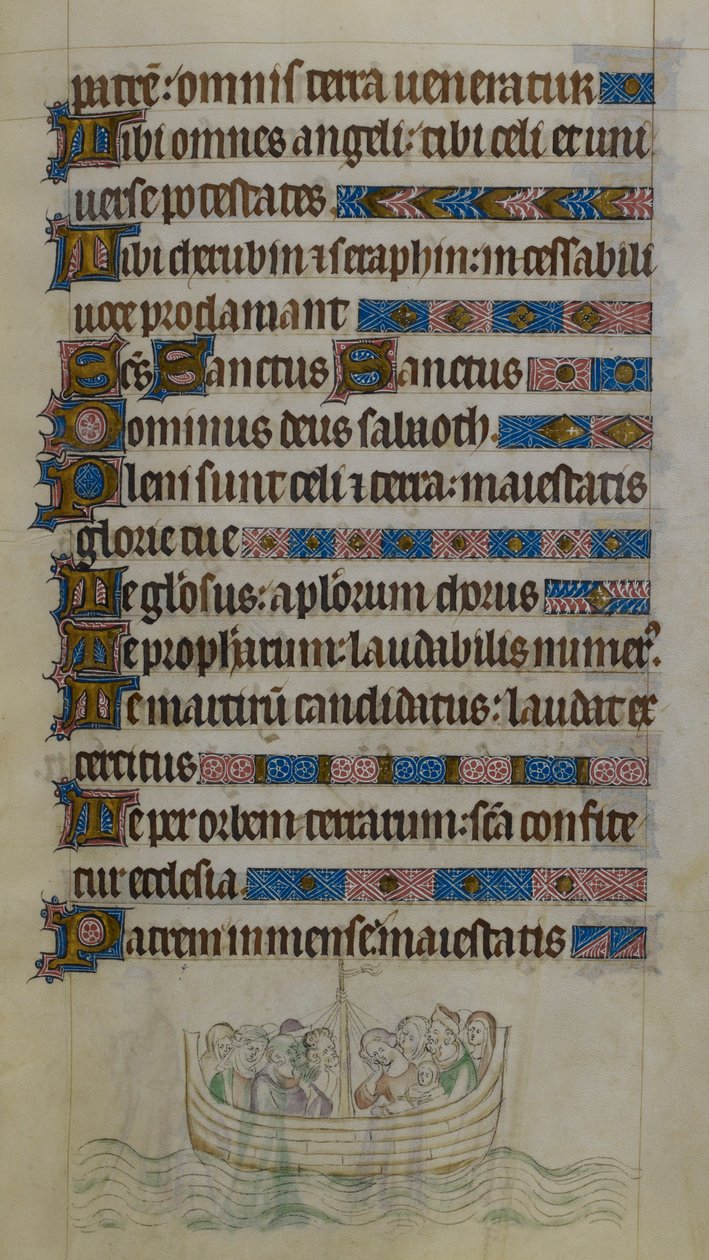 patrē: omnis terra ueneratur
Tibi omnes angeli: tibi celi et uni
uerse potestates.
Tibi cherubin ⁊ seraphin: incessabili
uoce proclamant
Scs̄ Sanctus Sanctus
Dominus deus sabaoth.
Pleni sunt celi ⁊ terra: maiestatis
glorie tue
Te gl'osus: apl'orum chorus
Te prophārum: laudabilis numerꝰ.
Te martirū candidatus: laudat ex
cercitus
Te per orbem terrarum: scā confite
tur ecclesia.
Patrem inmense: maiestatis